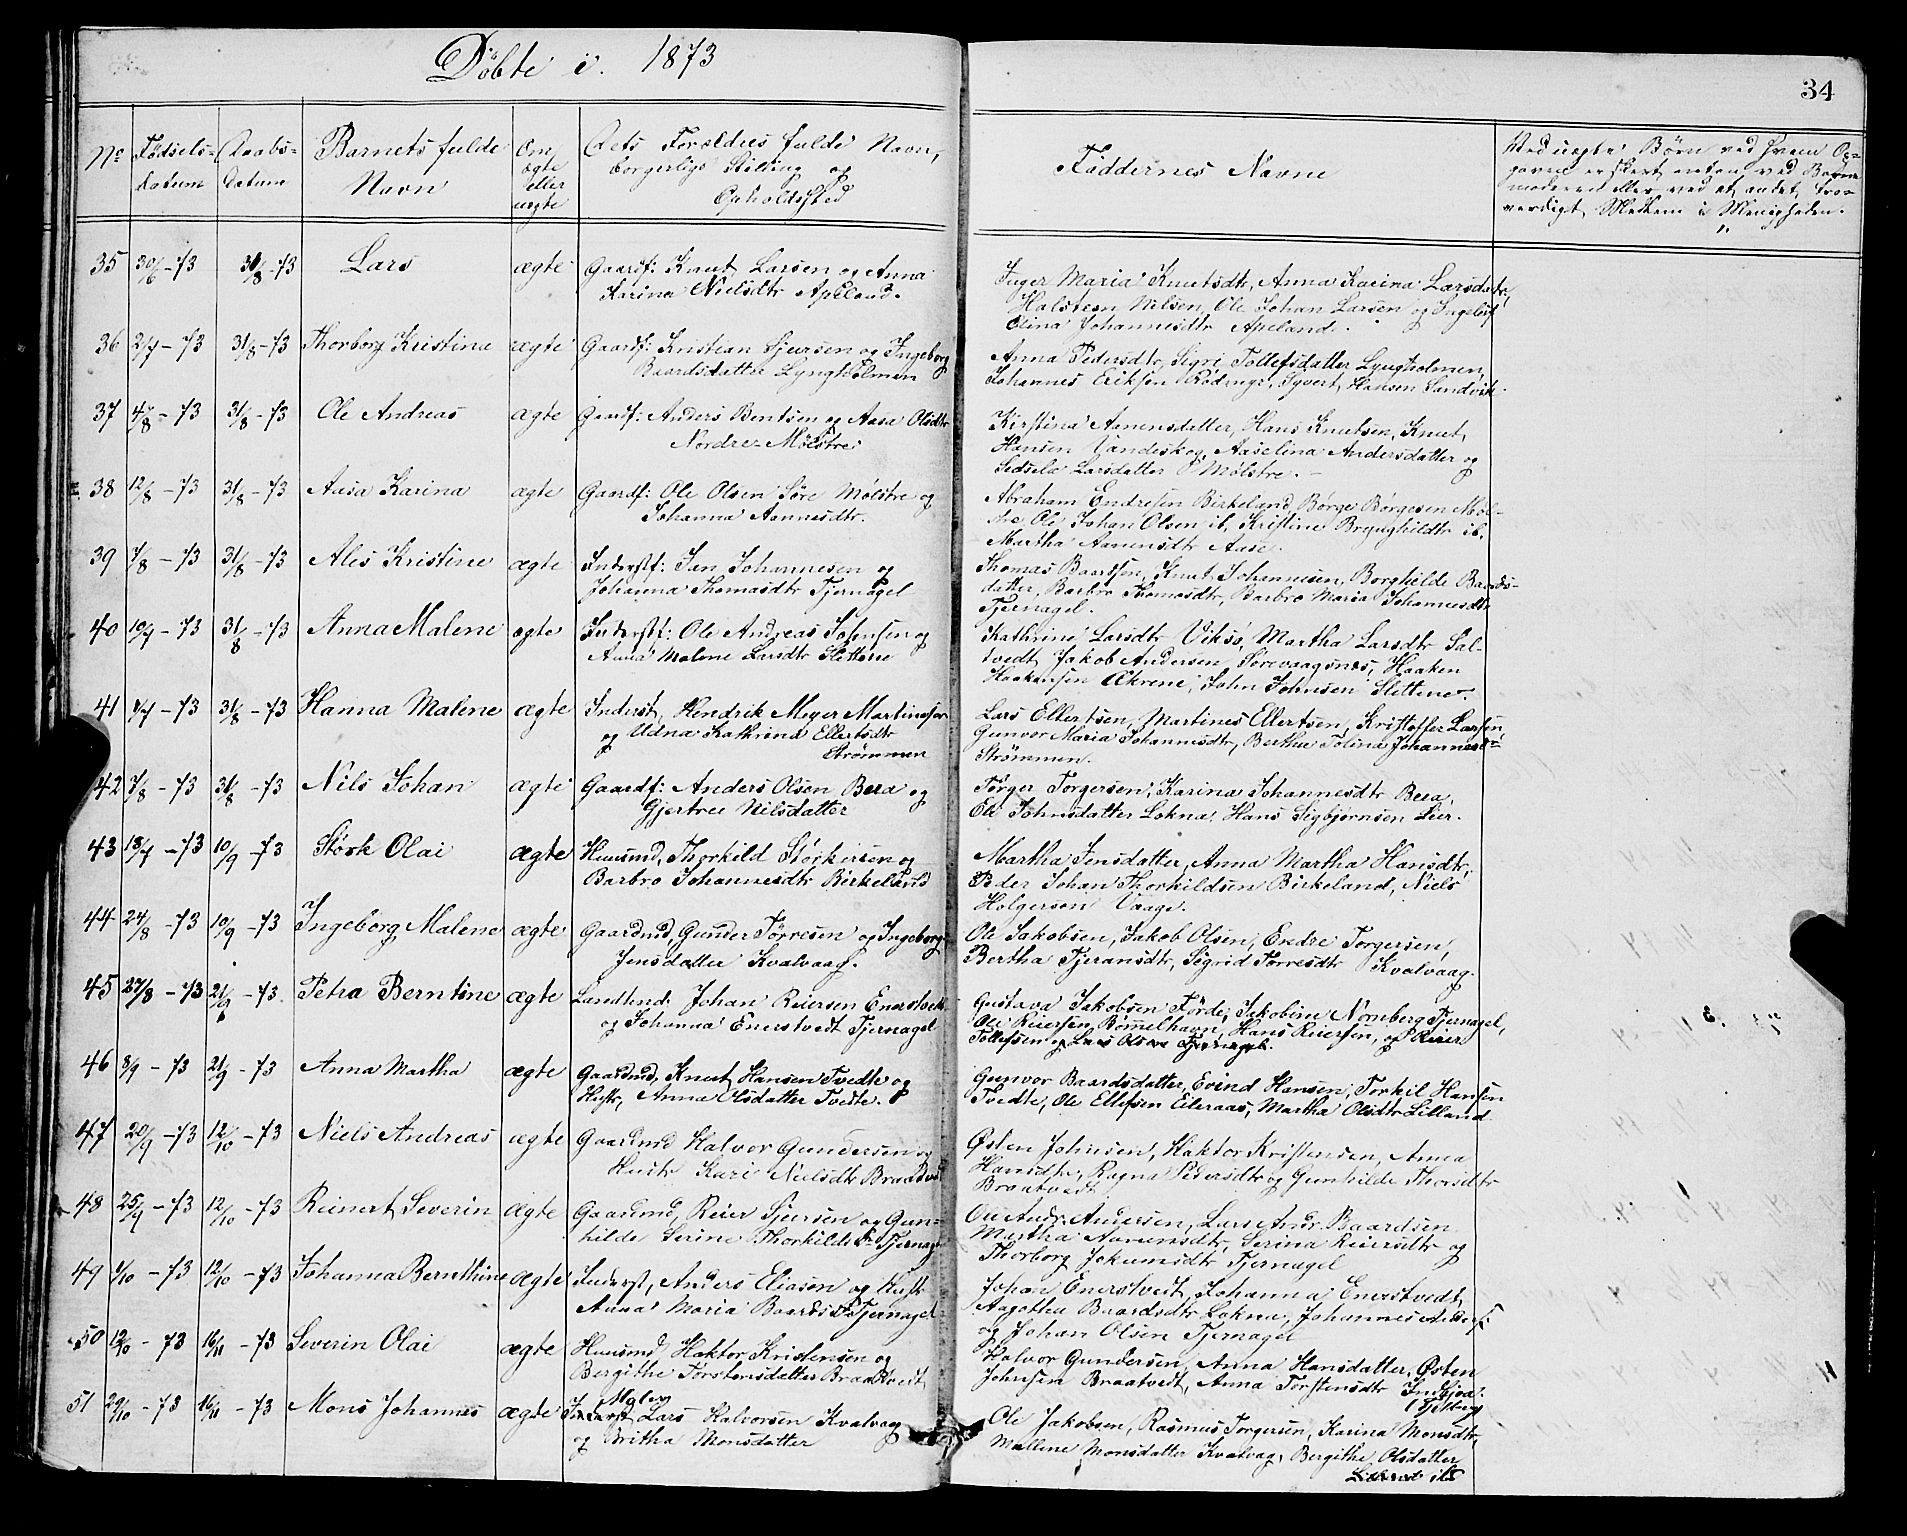 Døbte i. 1873
34
No
Fødsels-
datum
Daabs-
datum
Barnets fulde
Navn
Om
ægte
eller
uægte
Dets Forældres fulde Navn,
borgerlige Stilling og
Opholdssted
Faddernes Navne
Ved uægte Børn ved hvem Op-
gaven er skeet enten ved Barne
moderen eller ved et andet, tro-
værdigt Medlem i Menigheden.
35 30/6 -73 31/8 -73 Lars ægte Gaardf: Knut Larsen og Anna
Karina Nielsdtr Apeland.
Inger Maria Knutsdtr, Anna Karina Larsdatr,
Halsteen Nilsen, Ole Johan Larsen og Ingeleif
Elina Johannesdtr Apeland.
36 2/7 -73 31/8 -73 Thorborg Kristine ægte Gaardf: Kristian Sjursen og Ingeborg
Baardsdatter Lyngholmen
Anna Pedersdtr, Sigri Tollefsdatter Lyngholmen,
Johannes Eriksen Rødenge, Syvert Hansen Sandvik
37 4/8 -73 31/8 -73 Ole Andreas ægte Gaardf: Anders Bentsen og Aasa Olsdtr
Nordre-Mølstre
Kirstina Aanensdatter, Hans Knutsen, Knut
Hansen Vandeskog, Aaselina Andersdatter og
Sedsele Larsdatter Mølstre.
38 12/8 -73 31/8 -73 Aasa Karina ægte Gaardf: Ole Olsen Søre Mølstre og
Johanna Aannesdtr.
Abraham Endresen Birkeland, Børge Børgesen Møl-
stre Ole Johan Olsen ib, Kristine Brynghildtr ib.
Martha Aanensdtr Aase.
39 7/8 -73 31/8 -73 Ales Kristine ægte Inderstf: Jan Johannesen og
Johanna Thomasdtr Tjernagel
Thomas Baardsen, Knut Johannesen, Borghilde Baards-
datter, Barbro Thomasdtr, Barbro Maria Johannesdtr
Tjernagel.
40 10/7 -73 31/8 -73 Anna Malene ægte Inderstf: Ole Andreas Johnsen og
Anna Malene Larsdtr Slettene
Kathrine Larsdtr Viksø, Martha Larsdtr Sal-
tvedt, Jakob Andersen Sørevaagsnes, Haaken
Haakensen Økrene, John Johnsen Slettene.
41 1/7 -73 31/8 -73 Hanna Malene ægte Inderst, Hendrik Meyer Martinesen
og Udna Kathrina Ellertsdtr
Strømmen
Lars Ellertsen, Martines Ellertsen, Kristoffer Larsen,
Gunvor Maria Johannisdtr, Berthe Tolina Johannesd-
Strømmen.
42 7/8 -73 31/8 -73 Nils Johan ægte Gaardf: Anders Olsen Bera og
Gjertrue Nilsdatter
Tørger Torgersen, Karina Johannesdtr Bera,
Eli Johnsdatter Lokna, Hans Sigbjørnsen Lier.
43 18/7 -73 10/9 -73 Størk Olai ægte Huusmd, Thorkild Størkersen og
Barbro Johannesdtr Birkeland
Martha Jensdatter, Anna Martha Hansdtr,
Peder Johan Thorkildsen Birkeland, Niels
Holgersen Vaage.
44 24/8 -73 10/9 -73 Ingeborg Malene ægte Gaardmd, Gunder Tørresen og Ingeborg
Jensdatter Kvalvaag.
Ole Jakobsen, Jakob Olsen, Endre Torgersen,
Bertha Tjeransdtr, Sigrid Tørresdtr Kvalvaag.
45 27/8 -73 21/9 -73 Petra Berntine ægte Landhnd. Johan Reiersen Enerstvedt
og Johanna Enerstvedt Tjernagel
Gustava Jakobsen Førde, Jakobine Nornberg Tjernagel,
Ole Reiersen, Bømmelhavn, Hans Reiersen, og Reier
Tollefsen og Lars Olsen Tjernagel.
46 8/9 -73 21/9 -73 Anna Martha ægte Gaardmd, Knut Hansen Tvedte og
Hustr, Anna Olsdatter Tvedte.
Gunvor Baardsdatter, Evind Hansen, Torkil Hansen
Tvedte, Ole Ellefsen Eileraas, Martha Olsdtr Lilland
47 20/9 -73 12/10 -73 Niels Andreas ægte Gaardmd Halvor Gundersen og
Hustr Kari Nielsdtr Braatvedt
Østen Johnsen, Haktor Kristensen, Anna
Hansdtr, Ragna Pedersdtr og Gunhilde Thorsdtr
Braatvedt
48 25/9 -73 12/10 -73 Reinert Severin ægte Gaardmd, Reier Sjursen og Gun-
hilde Serine Thorkildsdr Tjernagel
Ole Andr. Andersen, Lars Andr. Baardsen
Martha Aanensdtr, Serina Reiersdtr og
Thorborg Jokumsdtr Tjernagel
49 1/10 -73 12/10 -73 Johanna Bernthine ægte Inderst, Anders Eliasen og Hustr
Anna Maria Baardsdtr Tjernagel
Johan Enerstvedt, Johanna Enerstvedt,
Aagotha Baardsdtr Lokna, Johannes
og Johan Olsen Tjernagel
50 12/10 -73 16/11 -73 Severin Olai ægte Huusmd, Haktor Kristensen og
Bergithe Torstensdatter Braatvedt
Halvor Gundersen, Anna Hansdatter, Østen
Johnsen Braatvedt, Anna Torstensdtr Indbjoa
51 29/10 -73 16/11 -73 Mons Johannes ægte Inderst Lars Halvorsen Kvalvag
og Britha Monsdatter
Ole Jakobsen, Rasmus Torgersen, Karina Monsdtr,
Mallene Monsdatter Kvalvag, Bergithe Olsdatter